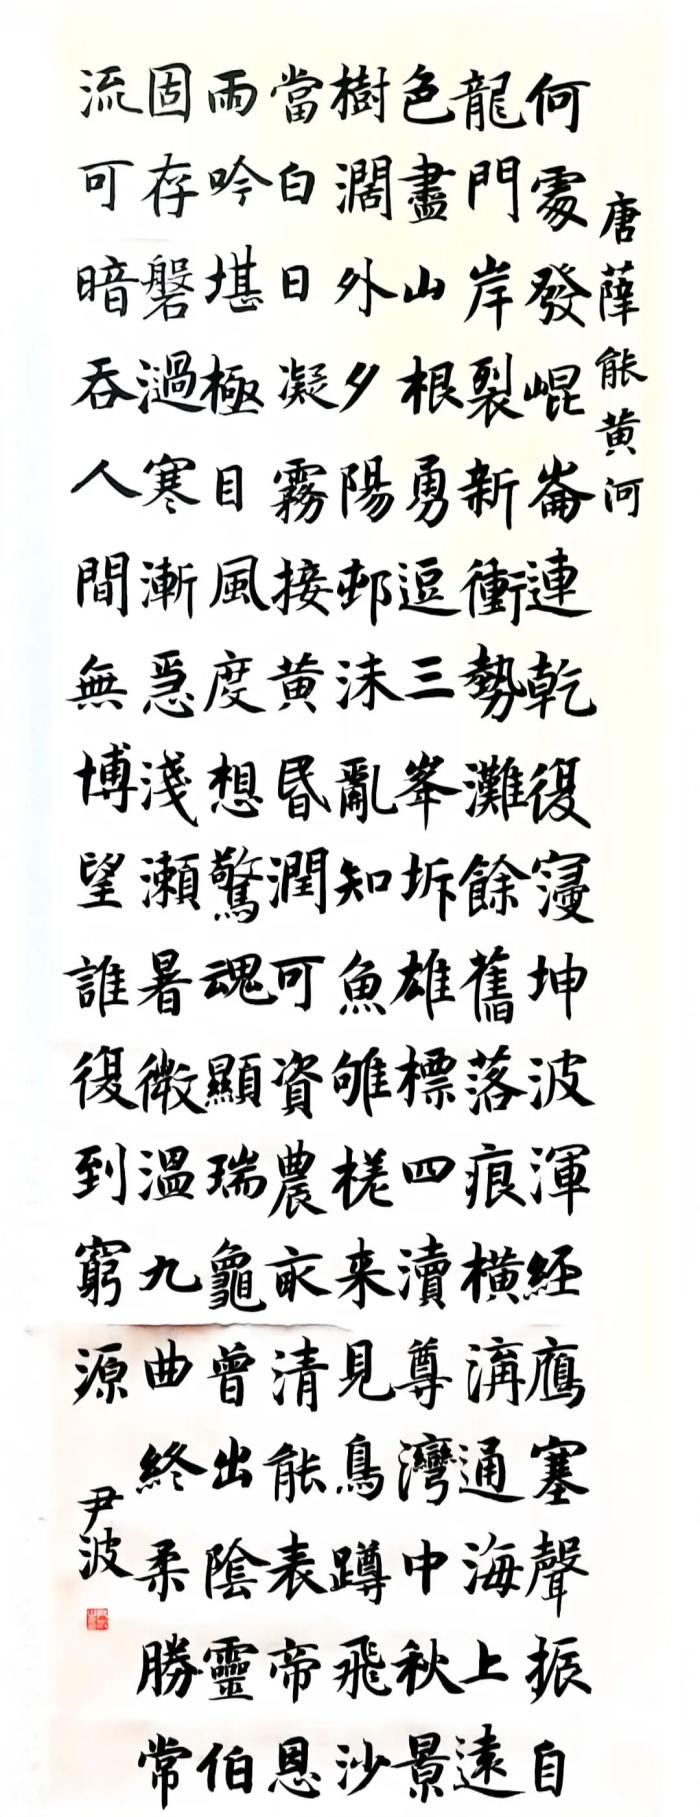 唐薛能黄河
何處發崐崙連乾復寖坤波渾經鴈塞聲振自
龍門岸裂新衝勢灘餘舊落痕橫溝通海上遠
色盡山根勇逗三峯坼雄標四瀆尊灣中秋景
樹濶外夕陽邨沫亂知魚呴槎来見鳥蹲飛沙
當白日凝霧接黄昏潤可資農畝清能表帝恩
雨吟堪極目風度想驚魂顯瑞龜曾出陰靈伯
固存磐渦寒漸急淺瀬暑微溫九曲終柔勝常
流可暗吞人間無博望誰復到窮源
尹波